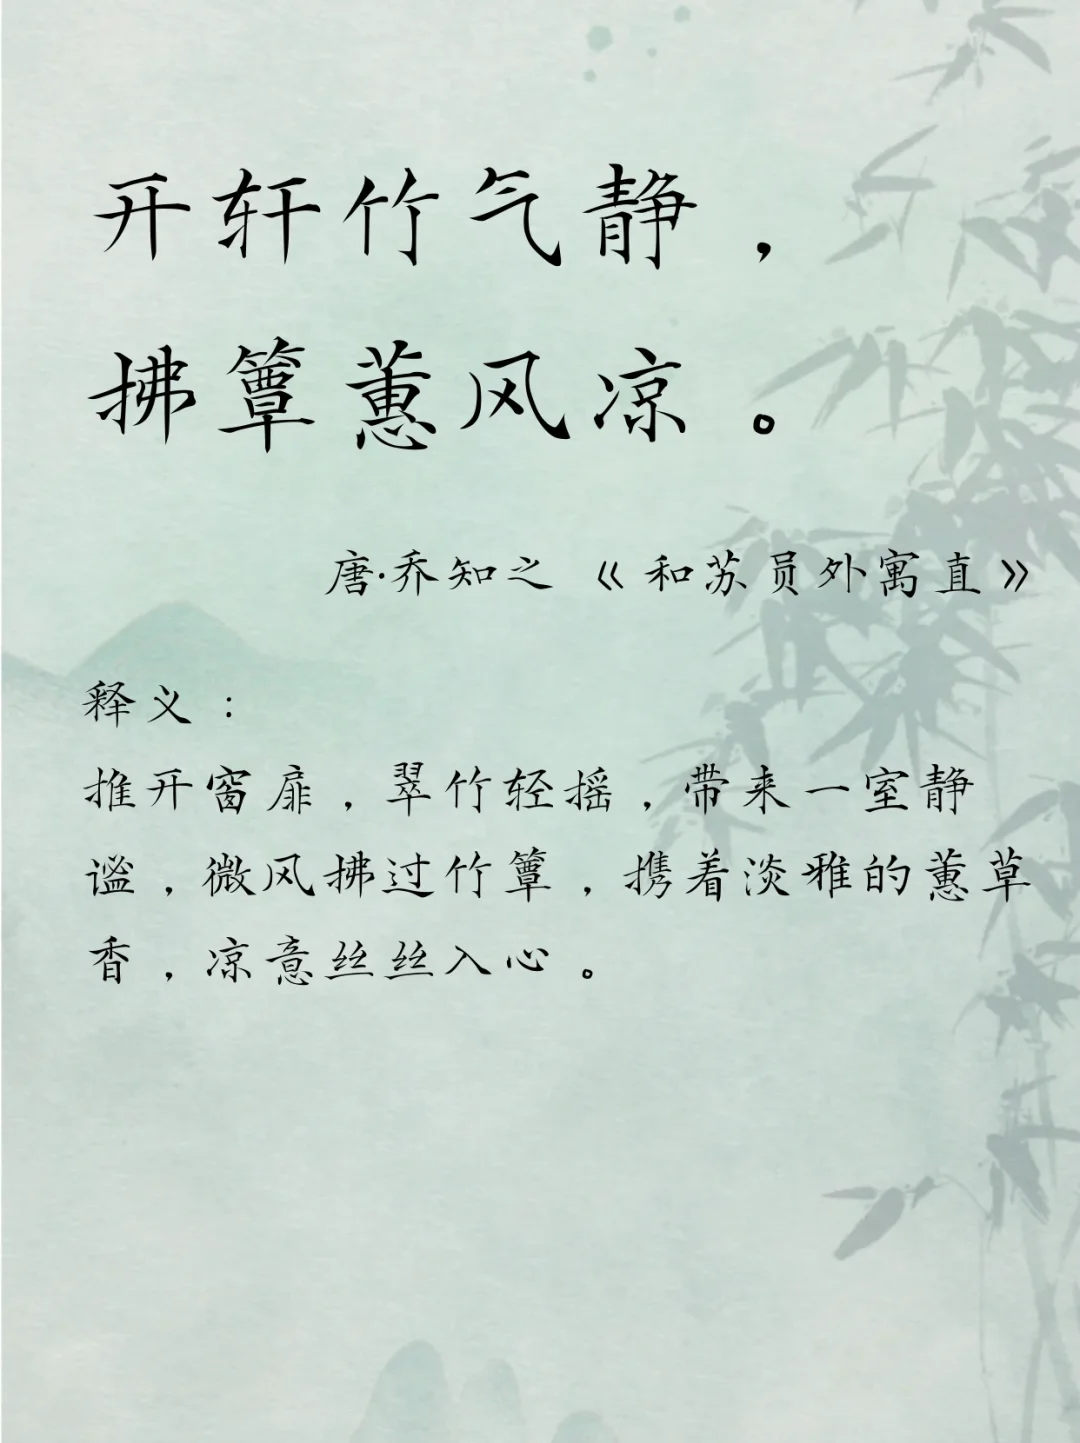 开轩竹气静，
拂簟蕙风凉。
唐·乔知之《和苏员外寓直》
释义：
推开窗扉，翠竹轻摇，带来一室静
谧，微风拂过竹簟，携着淡雅的蕙草
香，凉意丝丝入心。